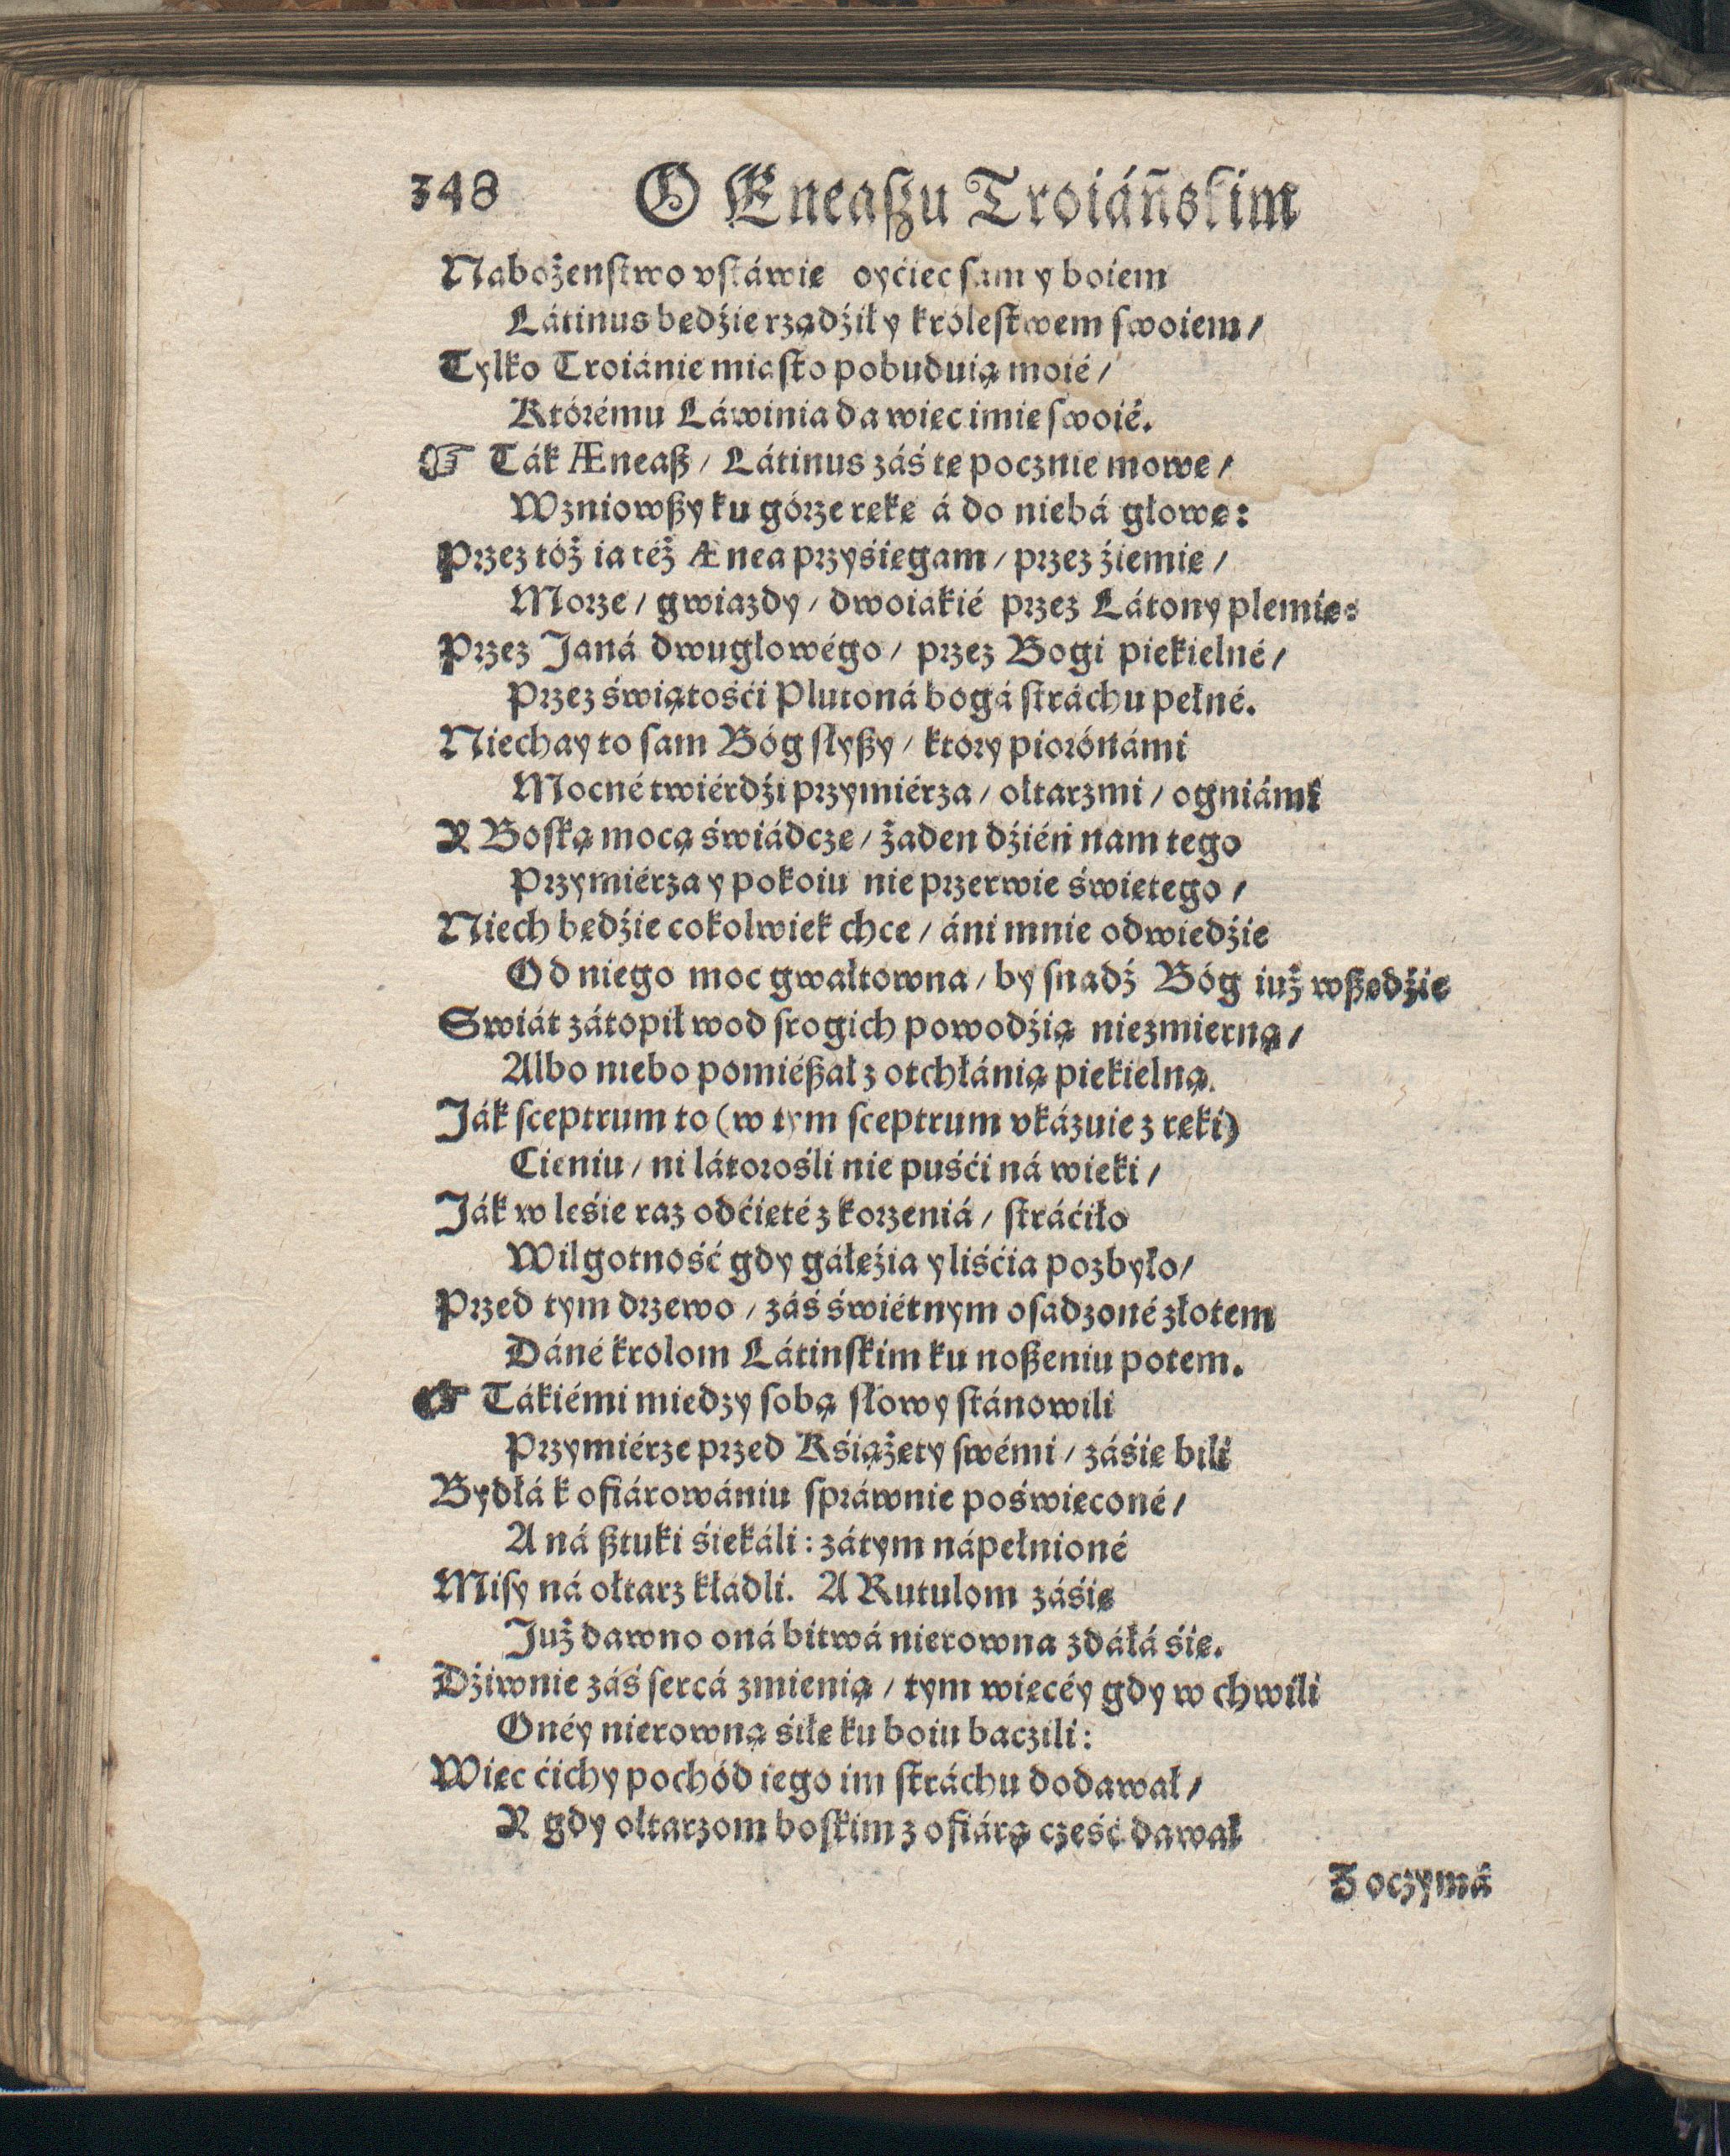 348 O Eneaſzu Troiáńskim
Nabożenſtwo vſtáwię oyćiec sam y boiem
Látinus będźie rządźił y króleſtwem ſwoiem /
Tylko Troiánie miáſto pobuduią moié /
Którému Láwinia da więc imię ſwoié.
☞ Ták Æneaß / Látinus záś tę pocznie mowę /
Wzniowßy ku górze rękę á do niebá głowę:
Przez tóż ia téż Ænea przyśięgam / przez źiemię /
Morze / gwiazdy / dwoiakié przez Látony plemię:
Przez Janá dwugłowégo / przez Bogi piekielné /
Przez świątośći Plutoná bogá ſtráchu pełné.
Niechay to ſam Bóg ſłyßy / który piorónámi
Mocné twiérdźi przymiérza / ołtarzmi / ogniámi
Y Boſką mocą świádczę / żaden dźień nam tego
Przymiérza y pokoiu nie przerwie świętego /
Niech będźie cokolwiek chce / áni mnie odwiedźie
Od niego moc gwałtowna / by ſnadź Bóg iuż wßędźie
Swiát zátopił wod ſrogich powodźią niezmierną /
Albo niebo pomiéßał z otchłánią piekielną.
Ják ſceptrum to (w tym ſceptrum vkázuie z ręki)
Cieniu / ni látorośli nie puśći ná wieki /
Ják w leśie raz odćięté z korzeniá / ſtráćiło
Wilgotność gdy gáłęźia y liśćia pozbyło /
Przed tym drzewo / záś świétnym oſadzoné złotem
Dáné królom Látinſkim ku noßeniu potem.
☞ Tákiémi miedzy ſobą ſłowy ſtánowili
Przymiérze przed Kśiążęty ſwémi / záśię bili
Bydłá k ofiárowániu ſpráwnie poświęconé /
A ná ßtuki śiekáli: zátym nápełnioné
Miſy ná ołtarz kładli. A Rutulom záśię
Już dawno oná bitwá nierowna zdáłá śię.
Dźiwnie záś ſercá zmienią / tym więcéy gdy w chwili
Onéy nierowną śiłę ku boiu baczili:
Więc ćichy pochód iego im ſtráchu dodawał /
Y gdy ołtarzom boſkim z ofiárą cześć dawał
Z oczymá